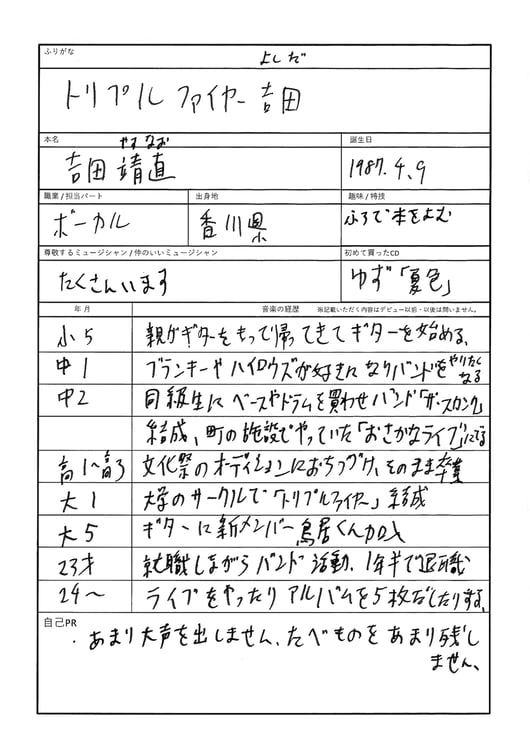 ふりがな
よしだ
トリプルファイヤー吉田
本名
やす なお
吉田 靖直
誕生日
1987.4.9
職業/担当パート
ボーカル
出身地
香川県
趣味/特技
ふろで本をよむ
尊敬するミュージシャン/仲のいいミュージシャン
たくさんいます
初めて買ったCD
ゆず「夏色」
年 月
音楽の経歴 ※記載いただく内容はデビュー以前・以後は問いません。
小5 親がギターをもって帰ってきてギターを始める、
中1 ブランキーやハイロウズが好きになりバンドをやりたくなる
中2 同級生にベースやドラムを買わせバンド「ザ・スカンク」
結成、町の施設でやっていた「おさかなライブ」にでる
高1〜高3 文化祭のオーディションにおちつづけ、そのまま卒業
大1 大学のサークルで「トリプルファイヤー」結成
大5 ギターに新メンバー鳥居くん加入
23才 就職しながらバンド活動、1年半で退職
24〜 ライブをやったりアルバムを5枚だしたりする、
自己PR
・あまり大声を出しません、たべものをあまり残し
ません、